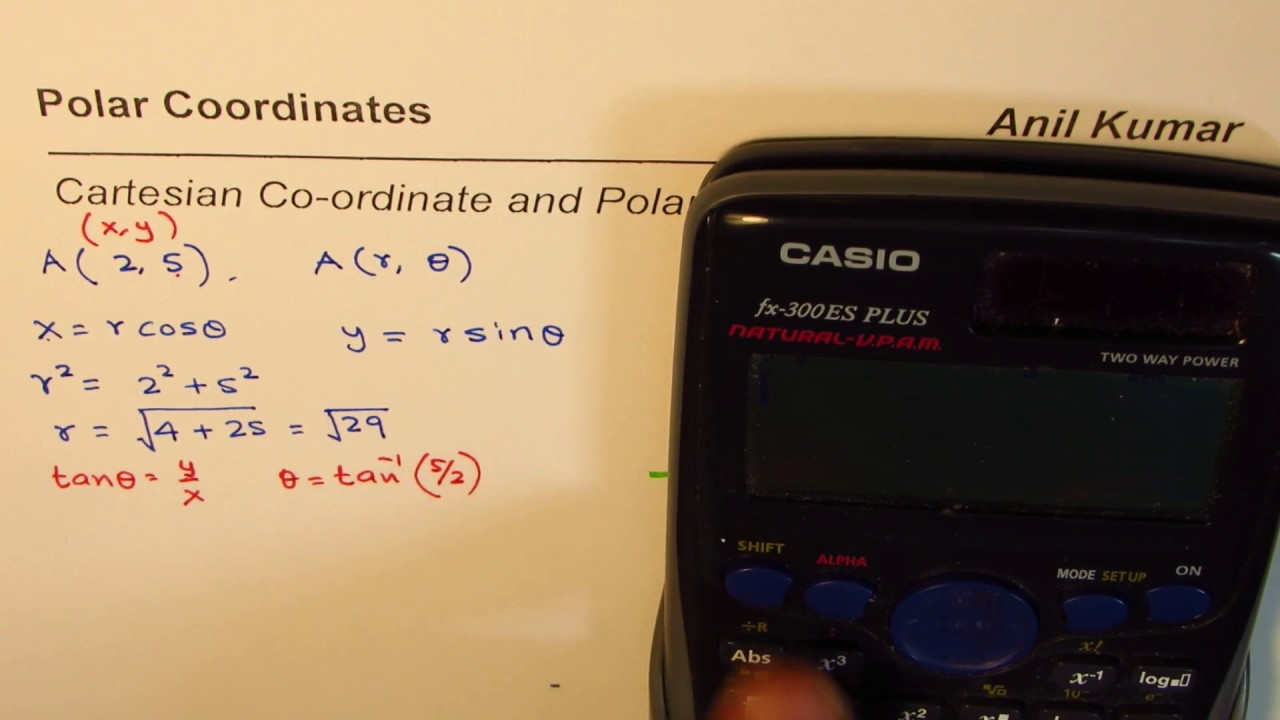 Polar Coordinates
Anil Kumar
Cartesian Co-ordinate and Pola
(x, y)
A( 2, 5). A(r, θ)
x = r cosθ y = r sinθ
r² = 2² + 5²
r = √4 + 25 = √29
tanθ = y/x θ = tan⁻¹ (5/2)
CASIO
fx-300ES PLUS
NATURAL-V.P.A.M.
TWO WAY POWER
SHIFT ALPHA MODE SETUP ON
÷R x!
Abs x³ x⁻¹ log
x²